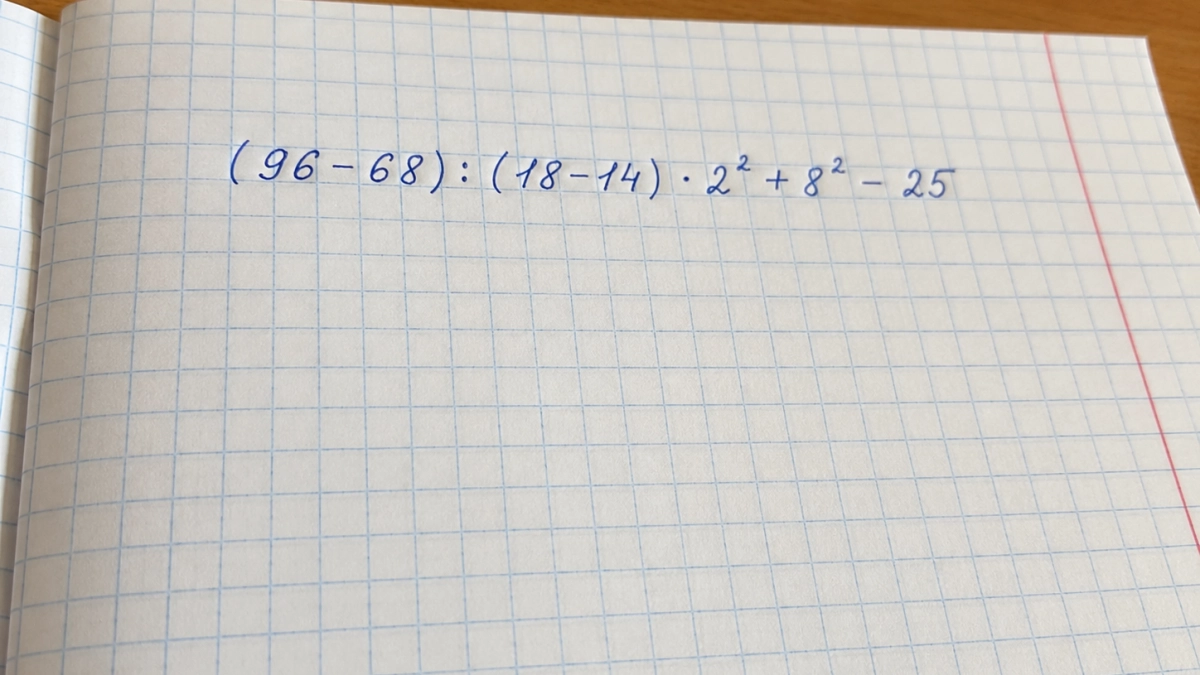 (96 − 68) : (18 − 14) · 2² + 8² − 25